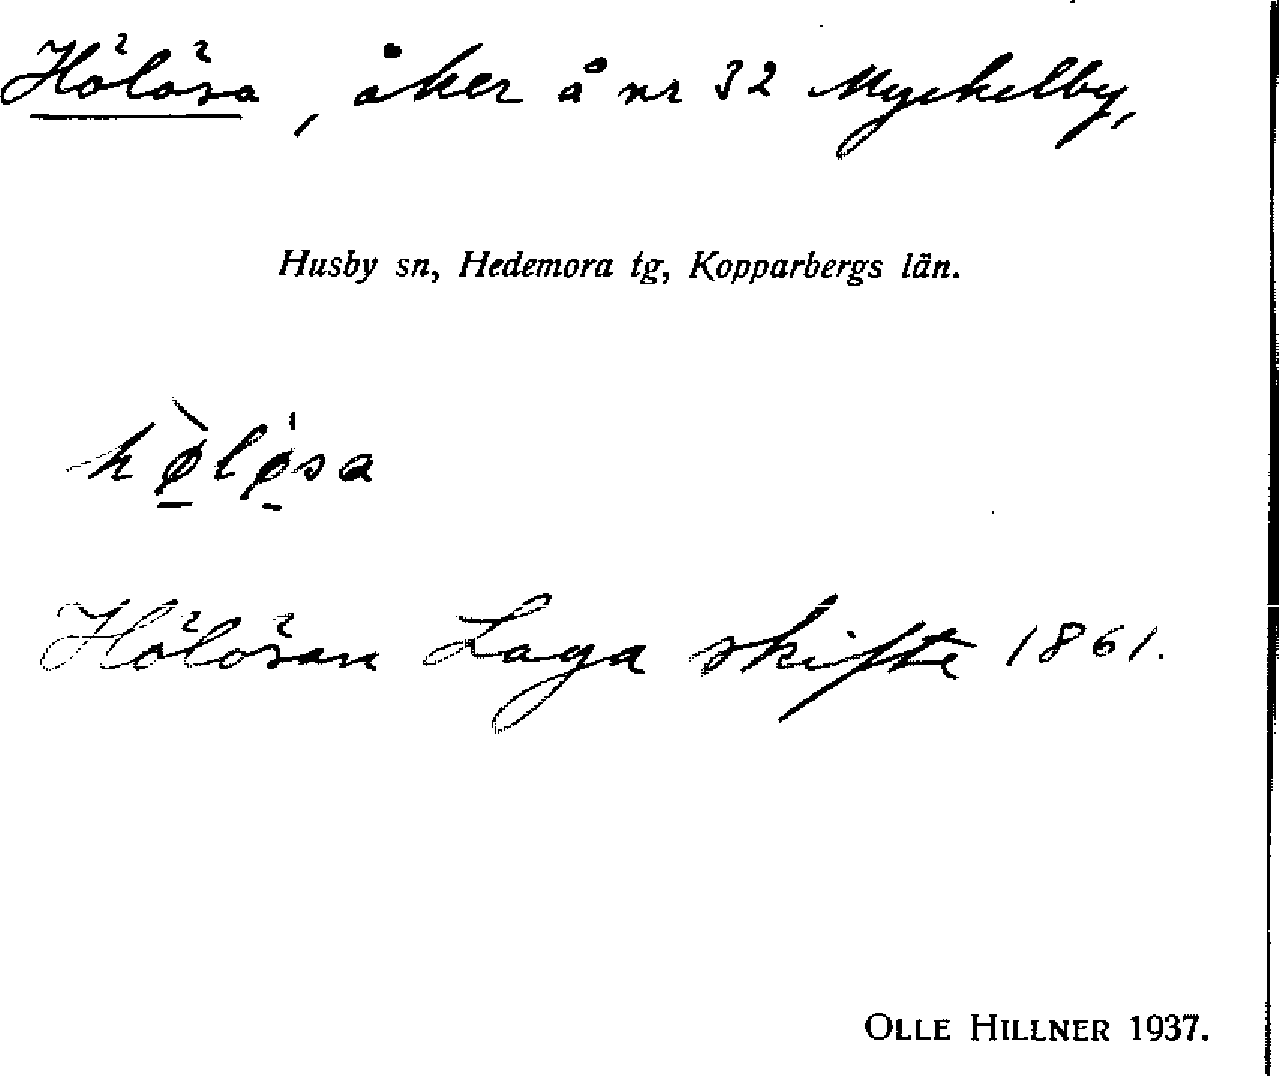 Hölösa, åker å nr 32 Myckelby,
Husby sn, Hedemora tg, Kopparbergs län.
hø̀lø̀sa
Hölösan Laga skifte 1861.
OLLE HILLNER 1937.